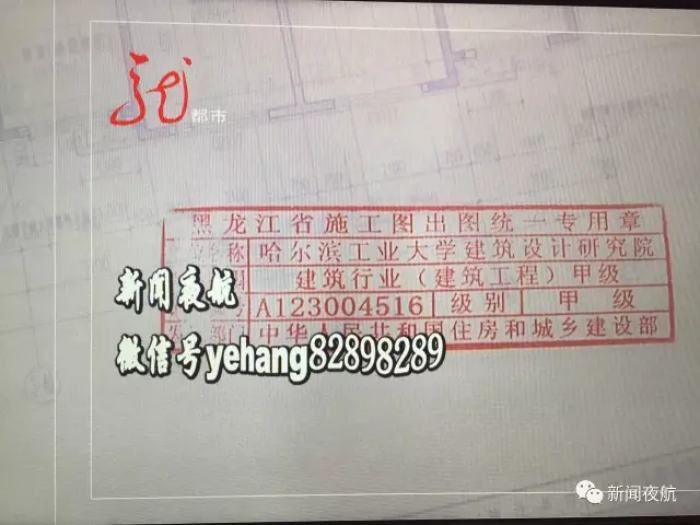 龙
都市
黑龙江省施工图出图统一专用章
称 哈尔滨工业大学建筑设计研究院
建筑行业（建筑工程）甲级
新闻夜航
A123004516 级别 甲级
部门 中华人民共和国住房和城乡建设部
微信号yehang82898289
新闻夜航